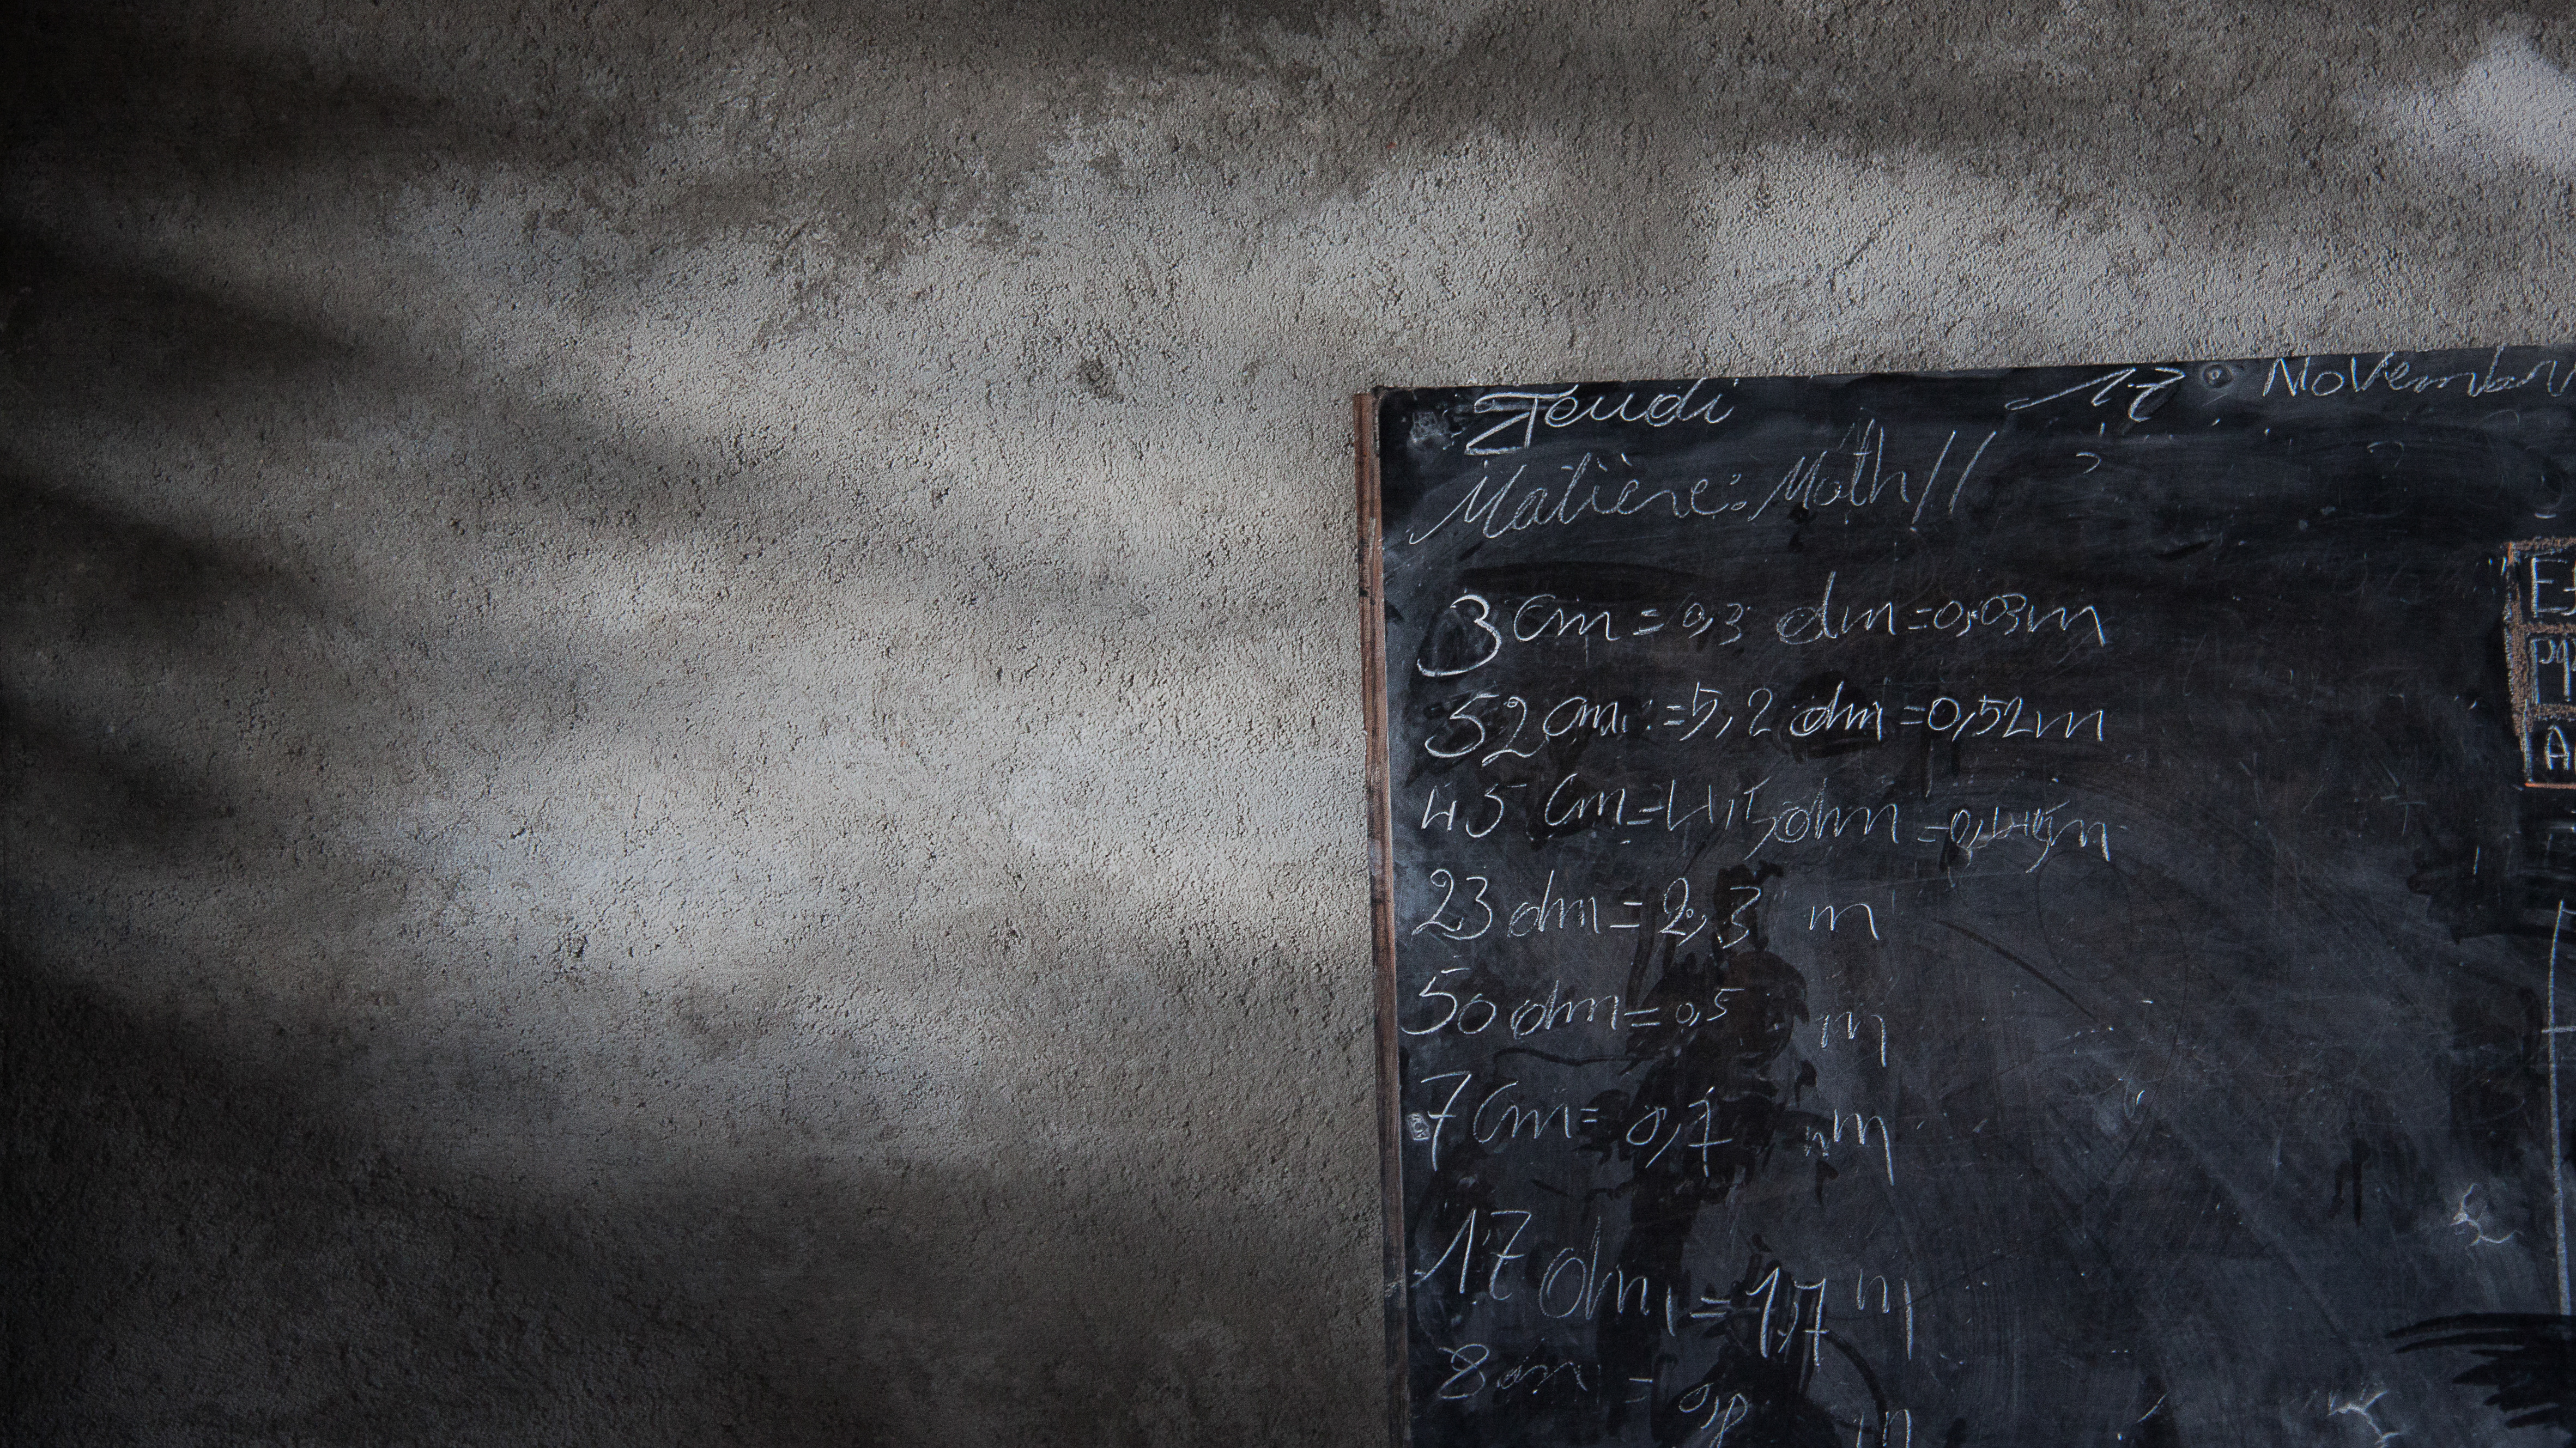 Jeudi 17 Novembre
Matière: Math //
3 cm = 0,3 dm = 0,03 m
52 cm = 5,2 dm = 0,52 m
45 cm = 4,5 dm = 0,45 m
23 dm = 2,3 m
50 dm = 0,5 m
7 cm = 0,7 m
17 dm = 1,7 m
8 cm = m
A